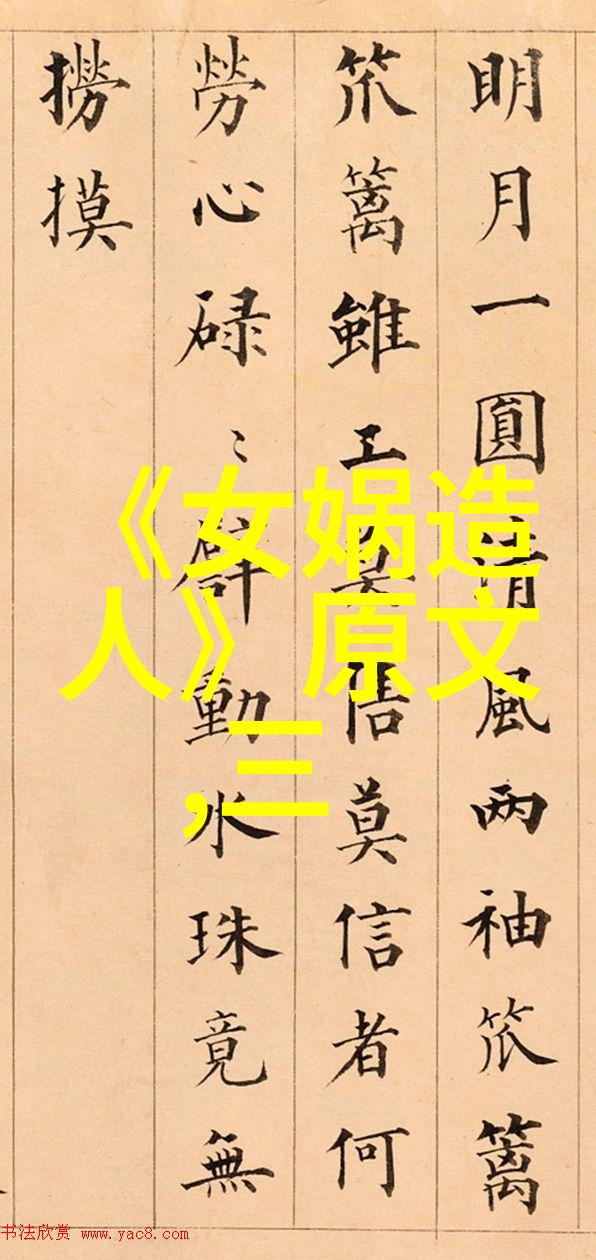 明月一圓清風两袖笊篱
笊篱雖工莫信者何
勞心碌〻動水珠竟無
撈摸
《女娲造
人》原文
,三
书法欣赏 www.yac8.com